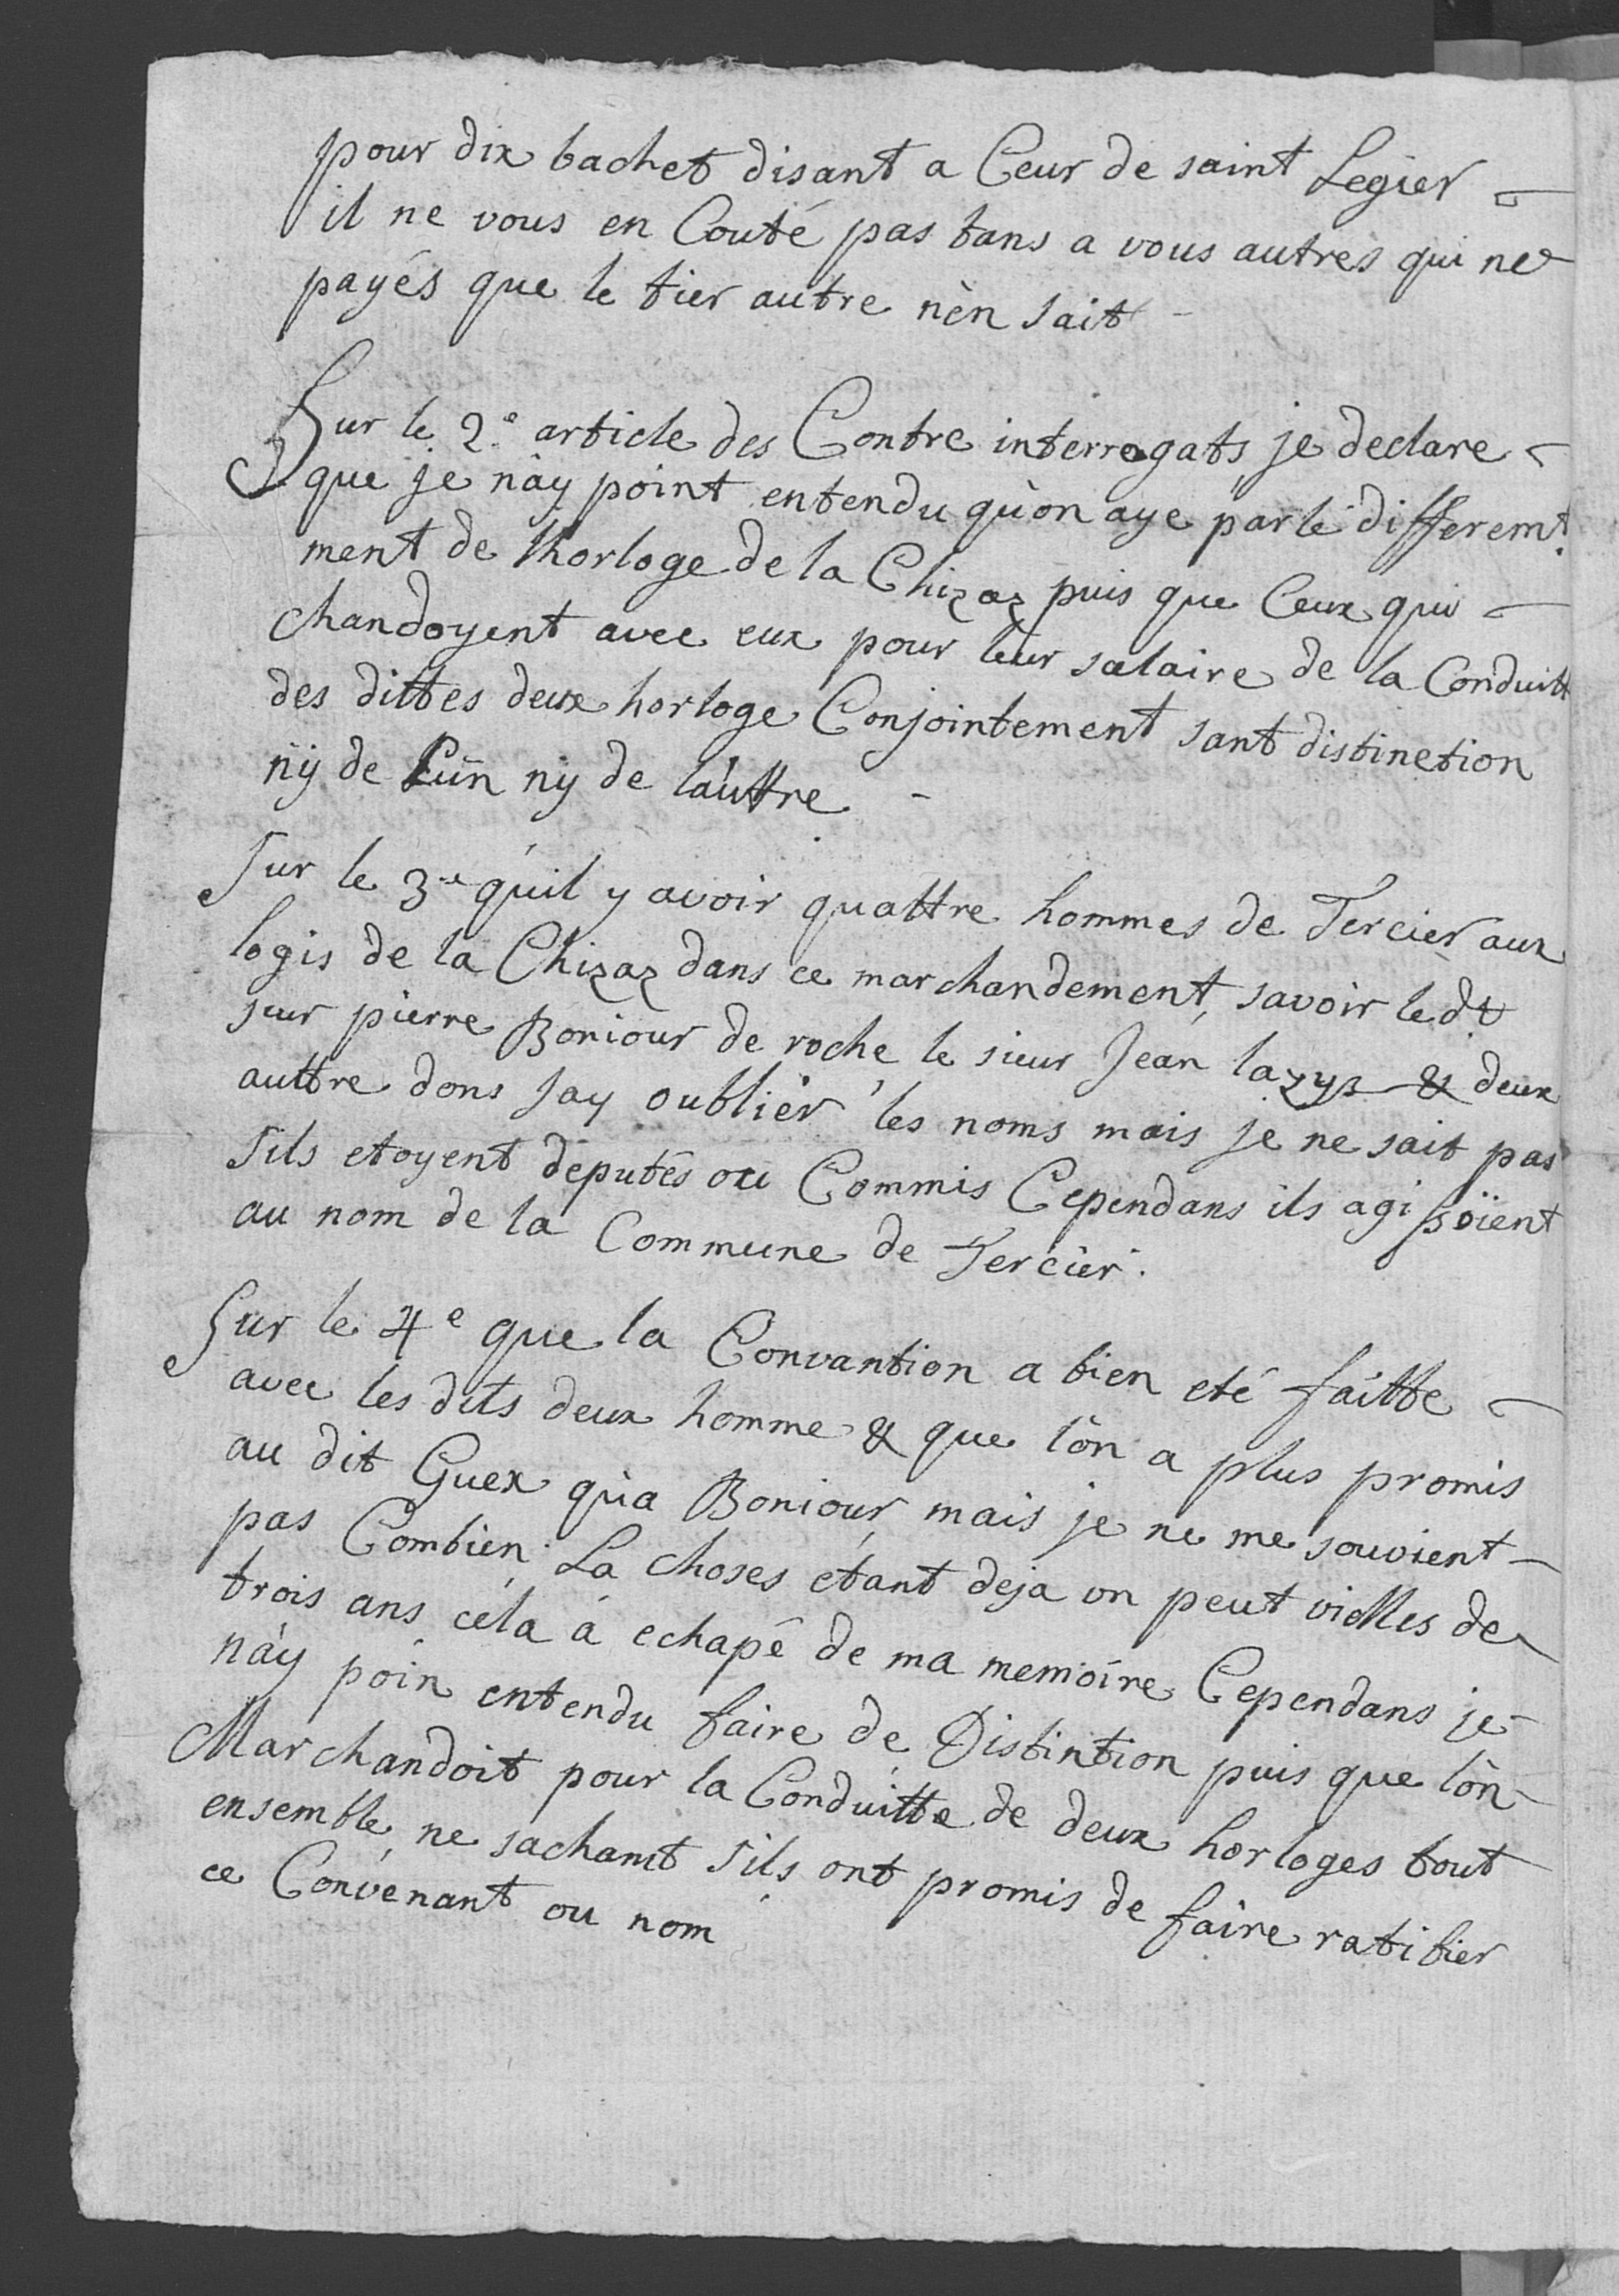 pour dix bachet disant a Ceux de saint Legier
il ne vous en Couté pas tans a vous autres qui ne
payés que le tier autre n'en sait
Sur le 2.e article des Contre interrogats je declare
que je n'ay point entendu qu'on aye parlé differemt.
ment de lhorloge de la Chizaz puis que Ceux qui
chandoyent avec eux pour leur salaire de la Conduitt
des dittes deux horloge Conjointement sant distinction
ny de Lun ny de l'auttre
Sur le 3.e qu'il y avoir quattre hommes de Tercier aux
logis de la Chizaz dans ce marchandement, savoir le dt
sur pierre Boniour de roche le sieur Jean & deux
auttre dons Jay oublier les noms mais je ne sait pas
s'ils etoyent deputés ou Commis Cependans ils agissoïent
au nom de la Commune de Tercier.
Sur le 4e que la Convantion a bien eté faitte
avec les dits deux homme & que l'on a plus promis
au dit Guex qu'a Boniour, mais je ne me souvient
pas Combien. La choses etant deja un peut vielles de
trois ans céla á echapé de ma memoire Cependans je
n'ay poin entendu faire de Distintion puis que l'on
Marchandoit pour la Conduitte de deux horloges tout
ensemble, ne sachamt s'ils ont promis de faire ratifier
ce Convenant ou nom